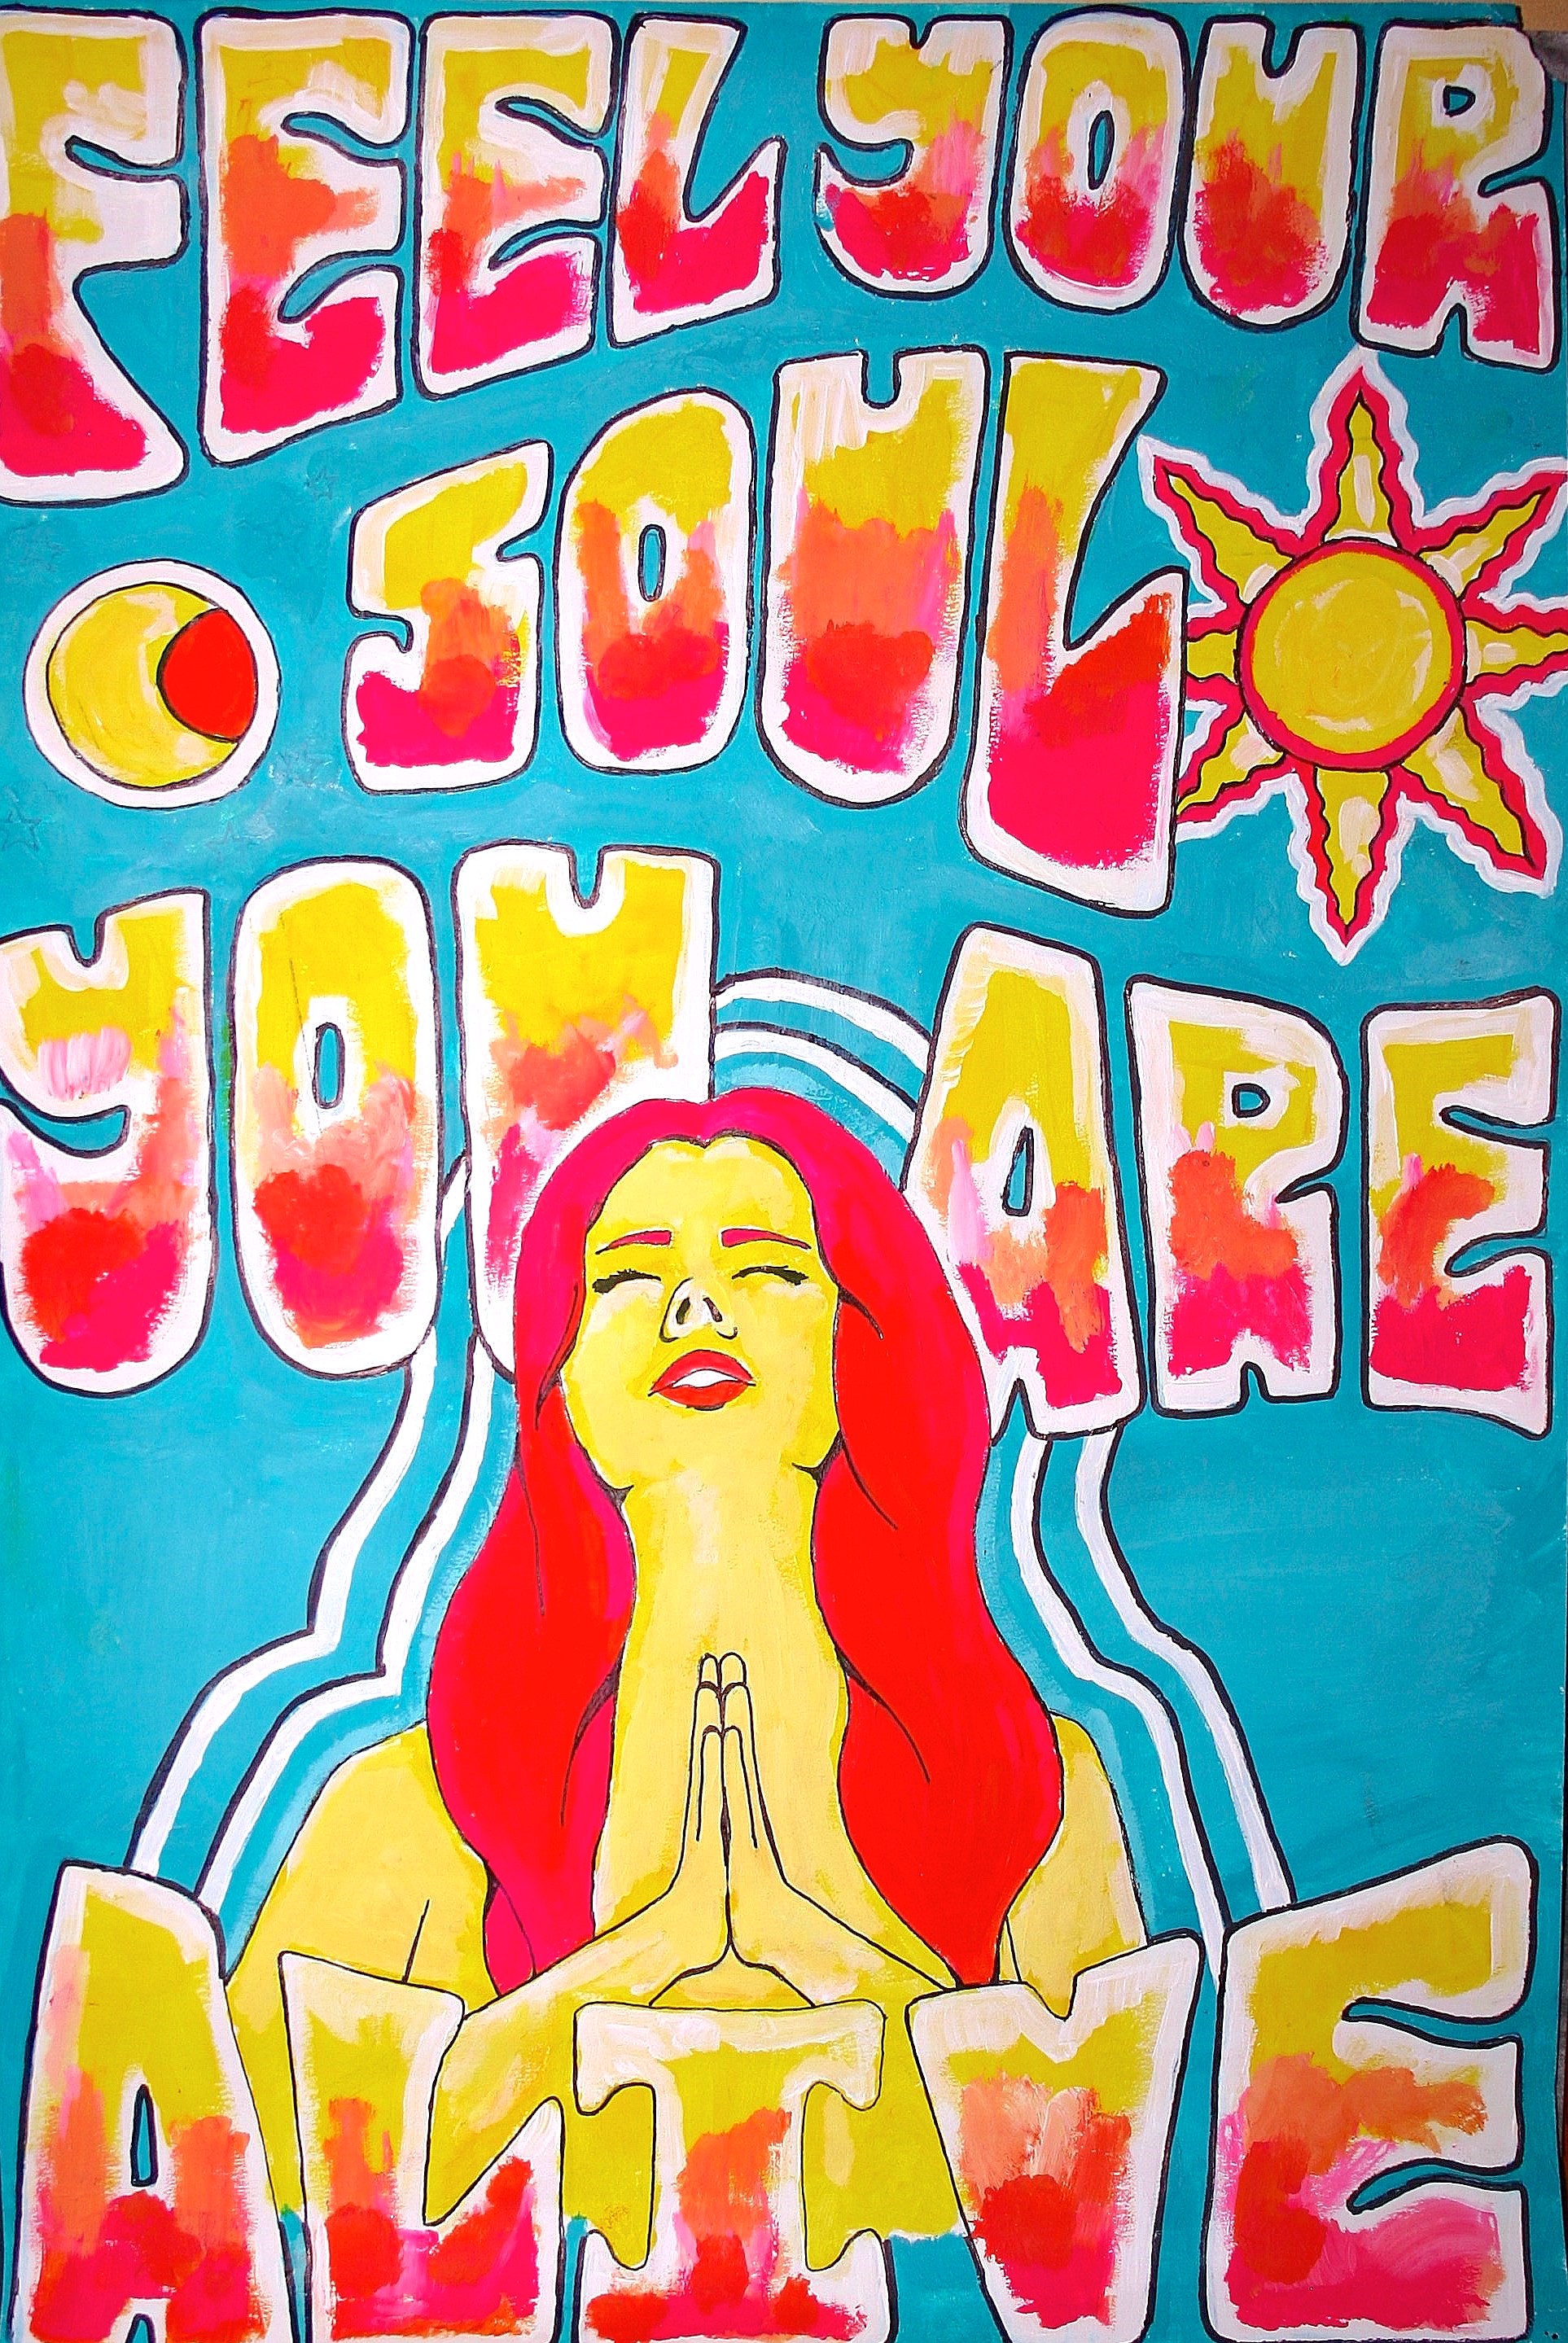 FEEL YOUR
SOUL
YOU ARE
ALIVE